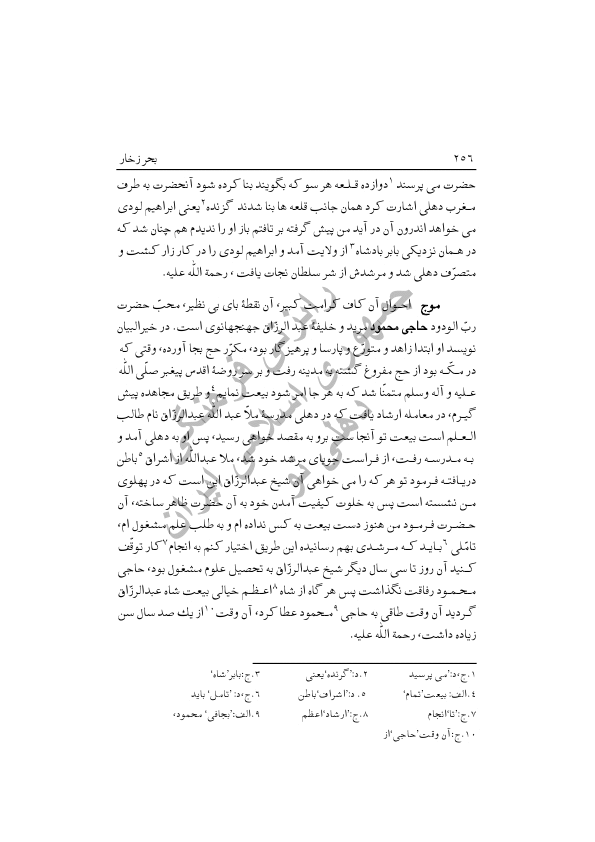 ۲۵۶ بحر زخار
حضرت می پرسند ۱ دوازده قلعه هر سو که بگویند بنا کرده شود آنحضرت به طرف
مغرب دهلی اشارت کرد همان جانب قلعه ها بنا شدند گزنده ۲ یعنی ابراهیم لودی
می خواهد اندرون آن در آید من پیش گرفته بر تافتم باز او را ندیدم هم چنان شد که
در همان نزدیکی بابر بادشاه ۳ از ولایت آمد و ابراهیم لودی را در کار زار کشت و
متصرّف دهلی شد و مرشدش از شر سلطان نجات یافت ، رحمة الله علیه.
موج احوال آن کاف کرامت کبیر، آن نقطۀ بای بی نظیر، محبّ حضرت
ربّ الودود حاجی محمود مرید و خلیفۀ عبد الرزّاق جهنجهانوی است. در خیرالبیان
نویسد او ابتدا زاهد و متورّع و پارسا و پرهیزگار بود، مکرّر حج بجا آورده، وقتی که
در مکّه بود از حج مفروغ گشته به مدینه رفت و بر سر روضۀ اقدس پیغبر صلّی الله
علیه و آله وسلم متمنّا شد که به هر جا امر شود بیعت نمایم ۴ و طریق مجاهده پیش
گیرم، در معامله ارشاد یافت که در دهلی مدرسۀ ملاّ عبد الله عبدالرزّاق نام طالب
العلم است بیعت تو آنجا ست برو به مقصد خواهی رسید، پس او به دهلی آمد و
به مدرسه رفت، از فراست جویای مرشد خود شد، ملا عبدالله از اشراق ۵ باطن
دریافته فرمود تو هر که را می خواهی آن شیخ عبدالرزّاق این است که در پهلوی
من نشسته است پس به خلوت کیفیت آمدن خود به آن حضرت ظاهر ساخته، آن
حضرت فرمود من هنوز دست بیعت به کس نداده ام و به طلب علم مشغول ام،
تامّلی ۶ باید که مرشدی بهم رسانیده این طریق اختیار کنم به انجام ۷ کار توقّف
کنید آن روز تا سی سال دیگر شیخ عبدالرزّاق به تحصیل علوم مشغول بود، حاجی
محمود رفاقت نگذاشت پس هر گاه از شاه ۸ اعظم خیالی بیعت شاه عبدالرزّاق
گردید آن وقت طاقی به حاجی ۹ محمود عطا کرد، آن وقت ۱۰ از یك صد سال سن
زیاده داشت، رحمة الله علیه.
۱.ج،د:'می پرسید ۲.د:'گرنده' یعنی ۳.ج:بابر'شاه'
۴.الف: بیعت'تمام' ۵.د:'اشراف' باطن ۶.ج،د:'تامل' باید
۷.ج:'تا' انجام ۸.ج:'ارشاد' اعظم ۹.الف:'بجافی' محمود،
۱۰.ج:آن وقت'حاجی' از